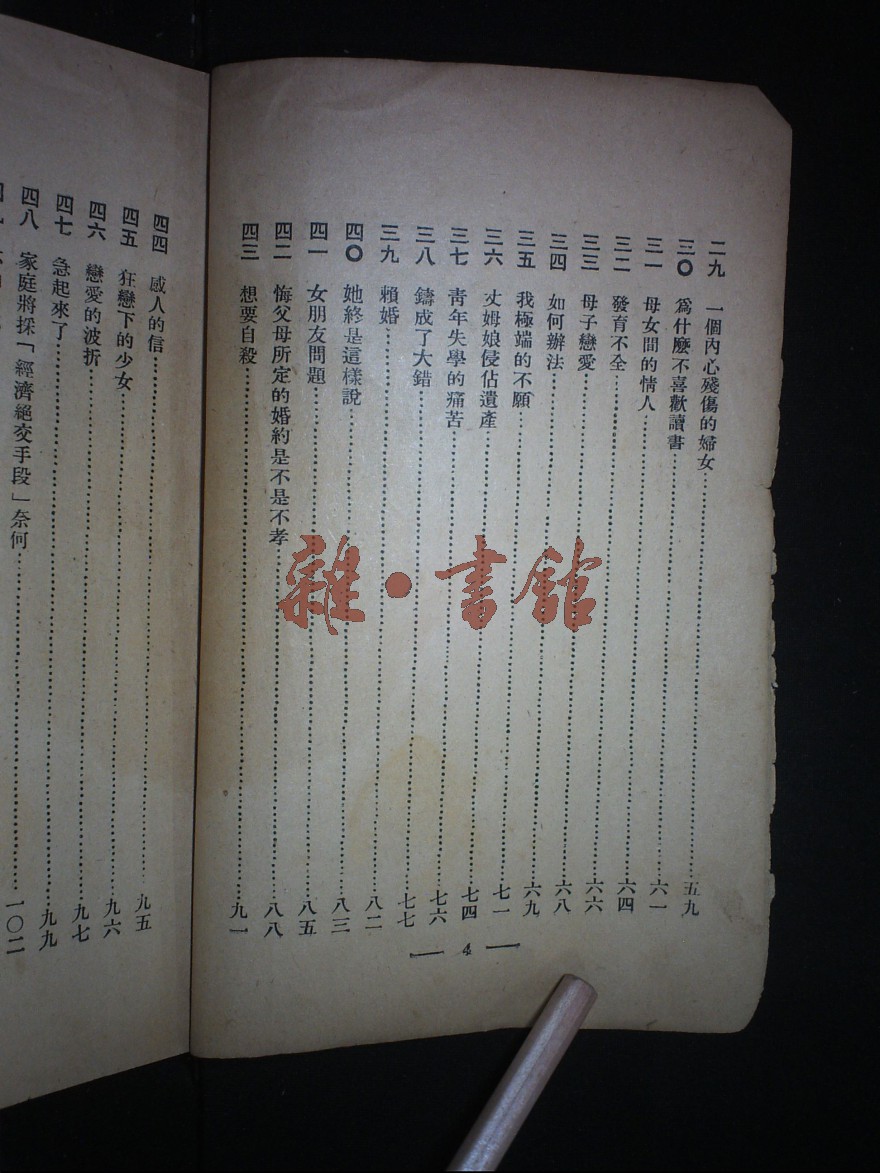 二九 一個內心殘傷的婦女 五九
三〇 爲什麼不喜歡讀書 六一
三一 母女間的情人 六四
三二 發育不全 六六
三三 母子戀愛 六八
三四 如何辦法 六九
三五 我極端的不願 七一
三六 丈姆娘侵佔遺產 七四
三七 青年失學的痛苦 七六
三八 鑄成了大錯 七七
三九 賴婚 八二
四〇 她終是這樣說 八三
四一 女朋友問題 八五
四二 悔父母所定的婚約是不是不孝 八八
四三 想要自殺 九一
4
四四 感人的信 九五
四五 狂戀下的少女 九六
四六 戀愛的波折 九七
四七 急起來了 九九
四八 家庭將採「經濟絕交手段」奈何 一〇二
雜·書館